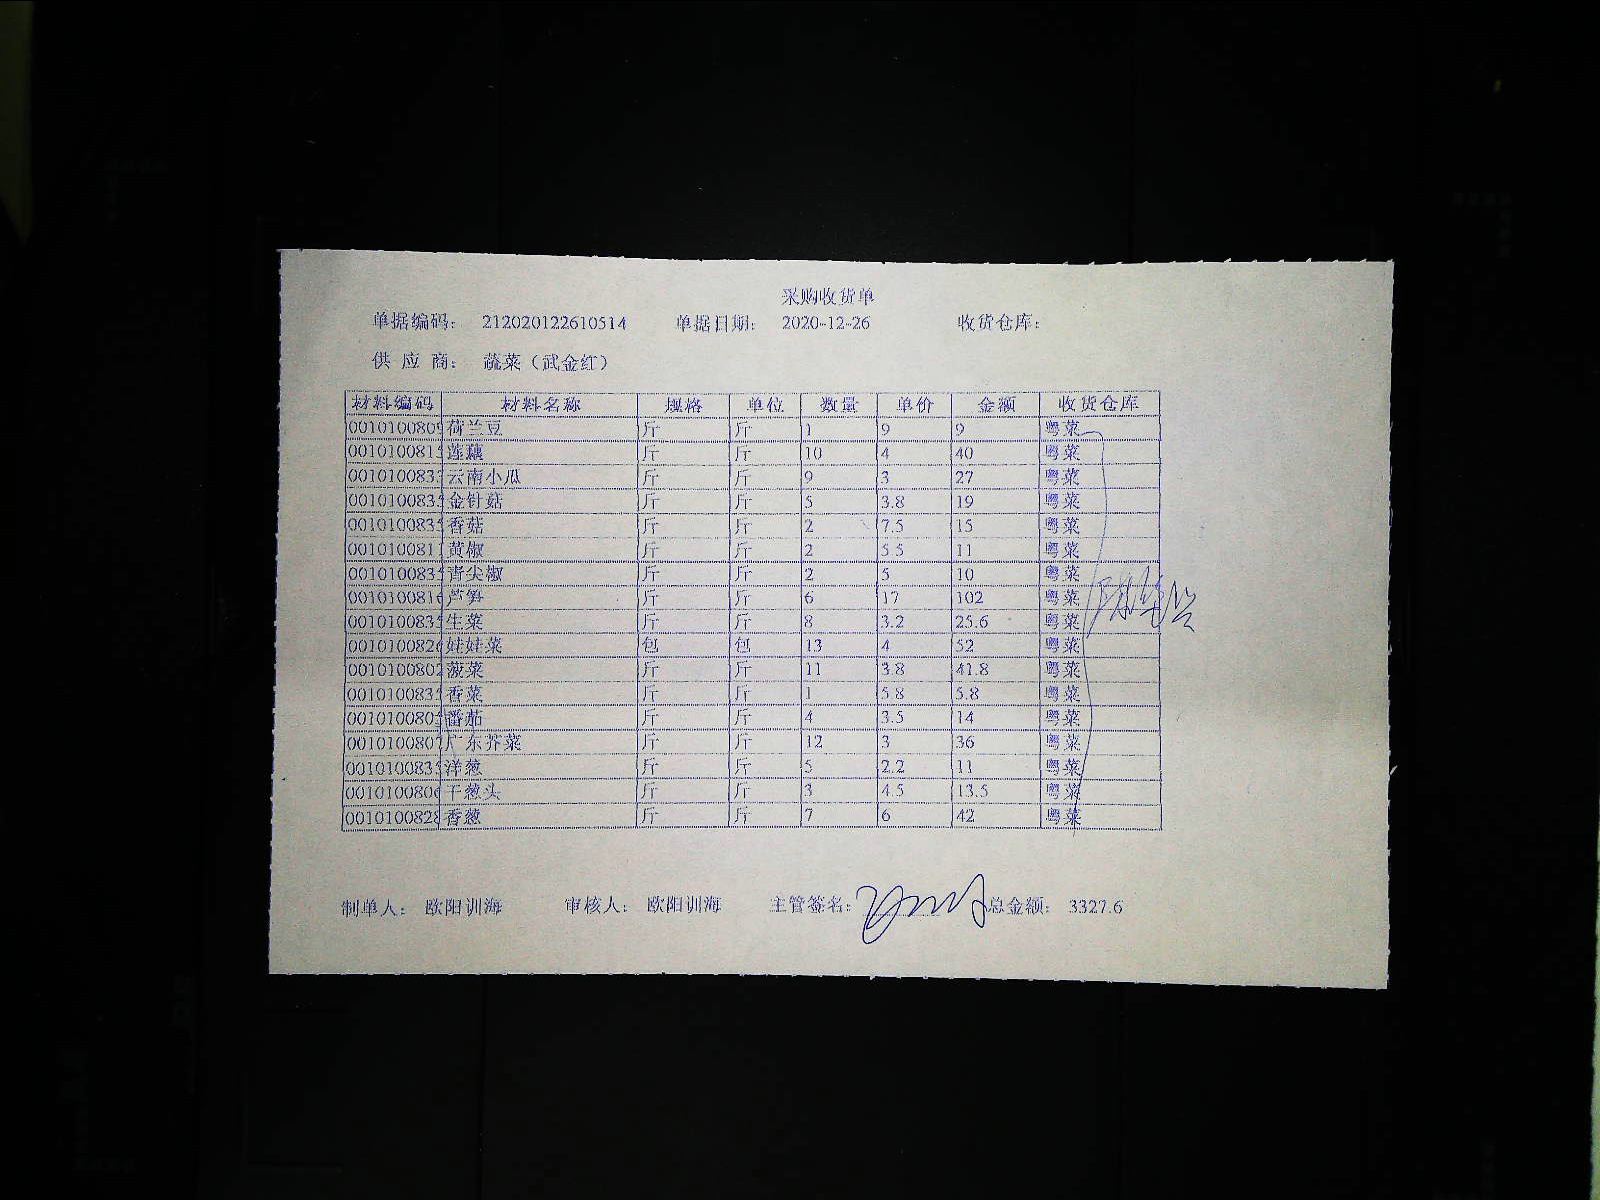 采购收货单
单据编码： 212020122610514 单据日期： 2020-12-26 收货仓库：
供 应 商： 蔬菜（武金红）
材料编码 材料名称 规格 单位 数量 单价 金额 收货仓库
0010100809 荷兰豆 斤 斤 1 9 9 粤菜
001010081 莲藕 斤 斤 10 4 40 粤菜
001010083 云南小瓜 斤 斤 9 3 27 粤菜
001010083 金针菇 斤 斤 5 3.8 19 粤菜
001010083 香菇 斤 斤 2 7.5 15 粤菜
001010081 黄椒 斤 斤 2 5.5 11 粤菜
001010083 青尖椒 斤 斤 2 5 10 粤菜
001010081 芦笋 斤 斤 6 17 102 粤菜
001010083 生菜 斤 斤 8 3.2 25.6 粤菜
001010082 娃娃菜 包 包 13 4 52 粤菜
0010100802 菠菜 斤 斤 11 3.8 41.8 粤菜
001010083 香菜 斤 斤 1 5.8 5.8 粤菜
001010080 番茄 斤 斤 4 3.5 14 粤菜
0010100807 广东芥菜 斤 斤 12 3 36 粤菜
001010083 洋葱 斤 斤 5 2.2 11 粤菜
001010080 干葱头 斤 斤 3 4.5 13.5 粤菜
0010100828 香葱 斤 斤 7 6 42 粤菜
制单人： 欧阳训海 审核人： 欧阳训海 主管签名： 总金额： 3327.6